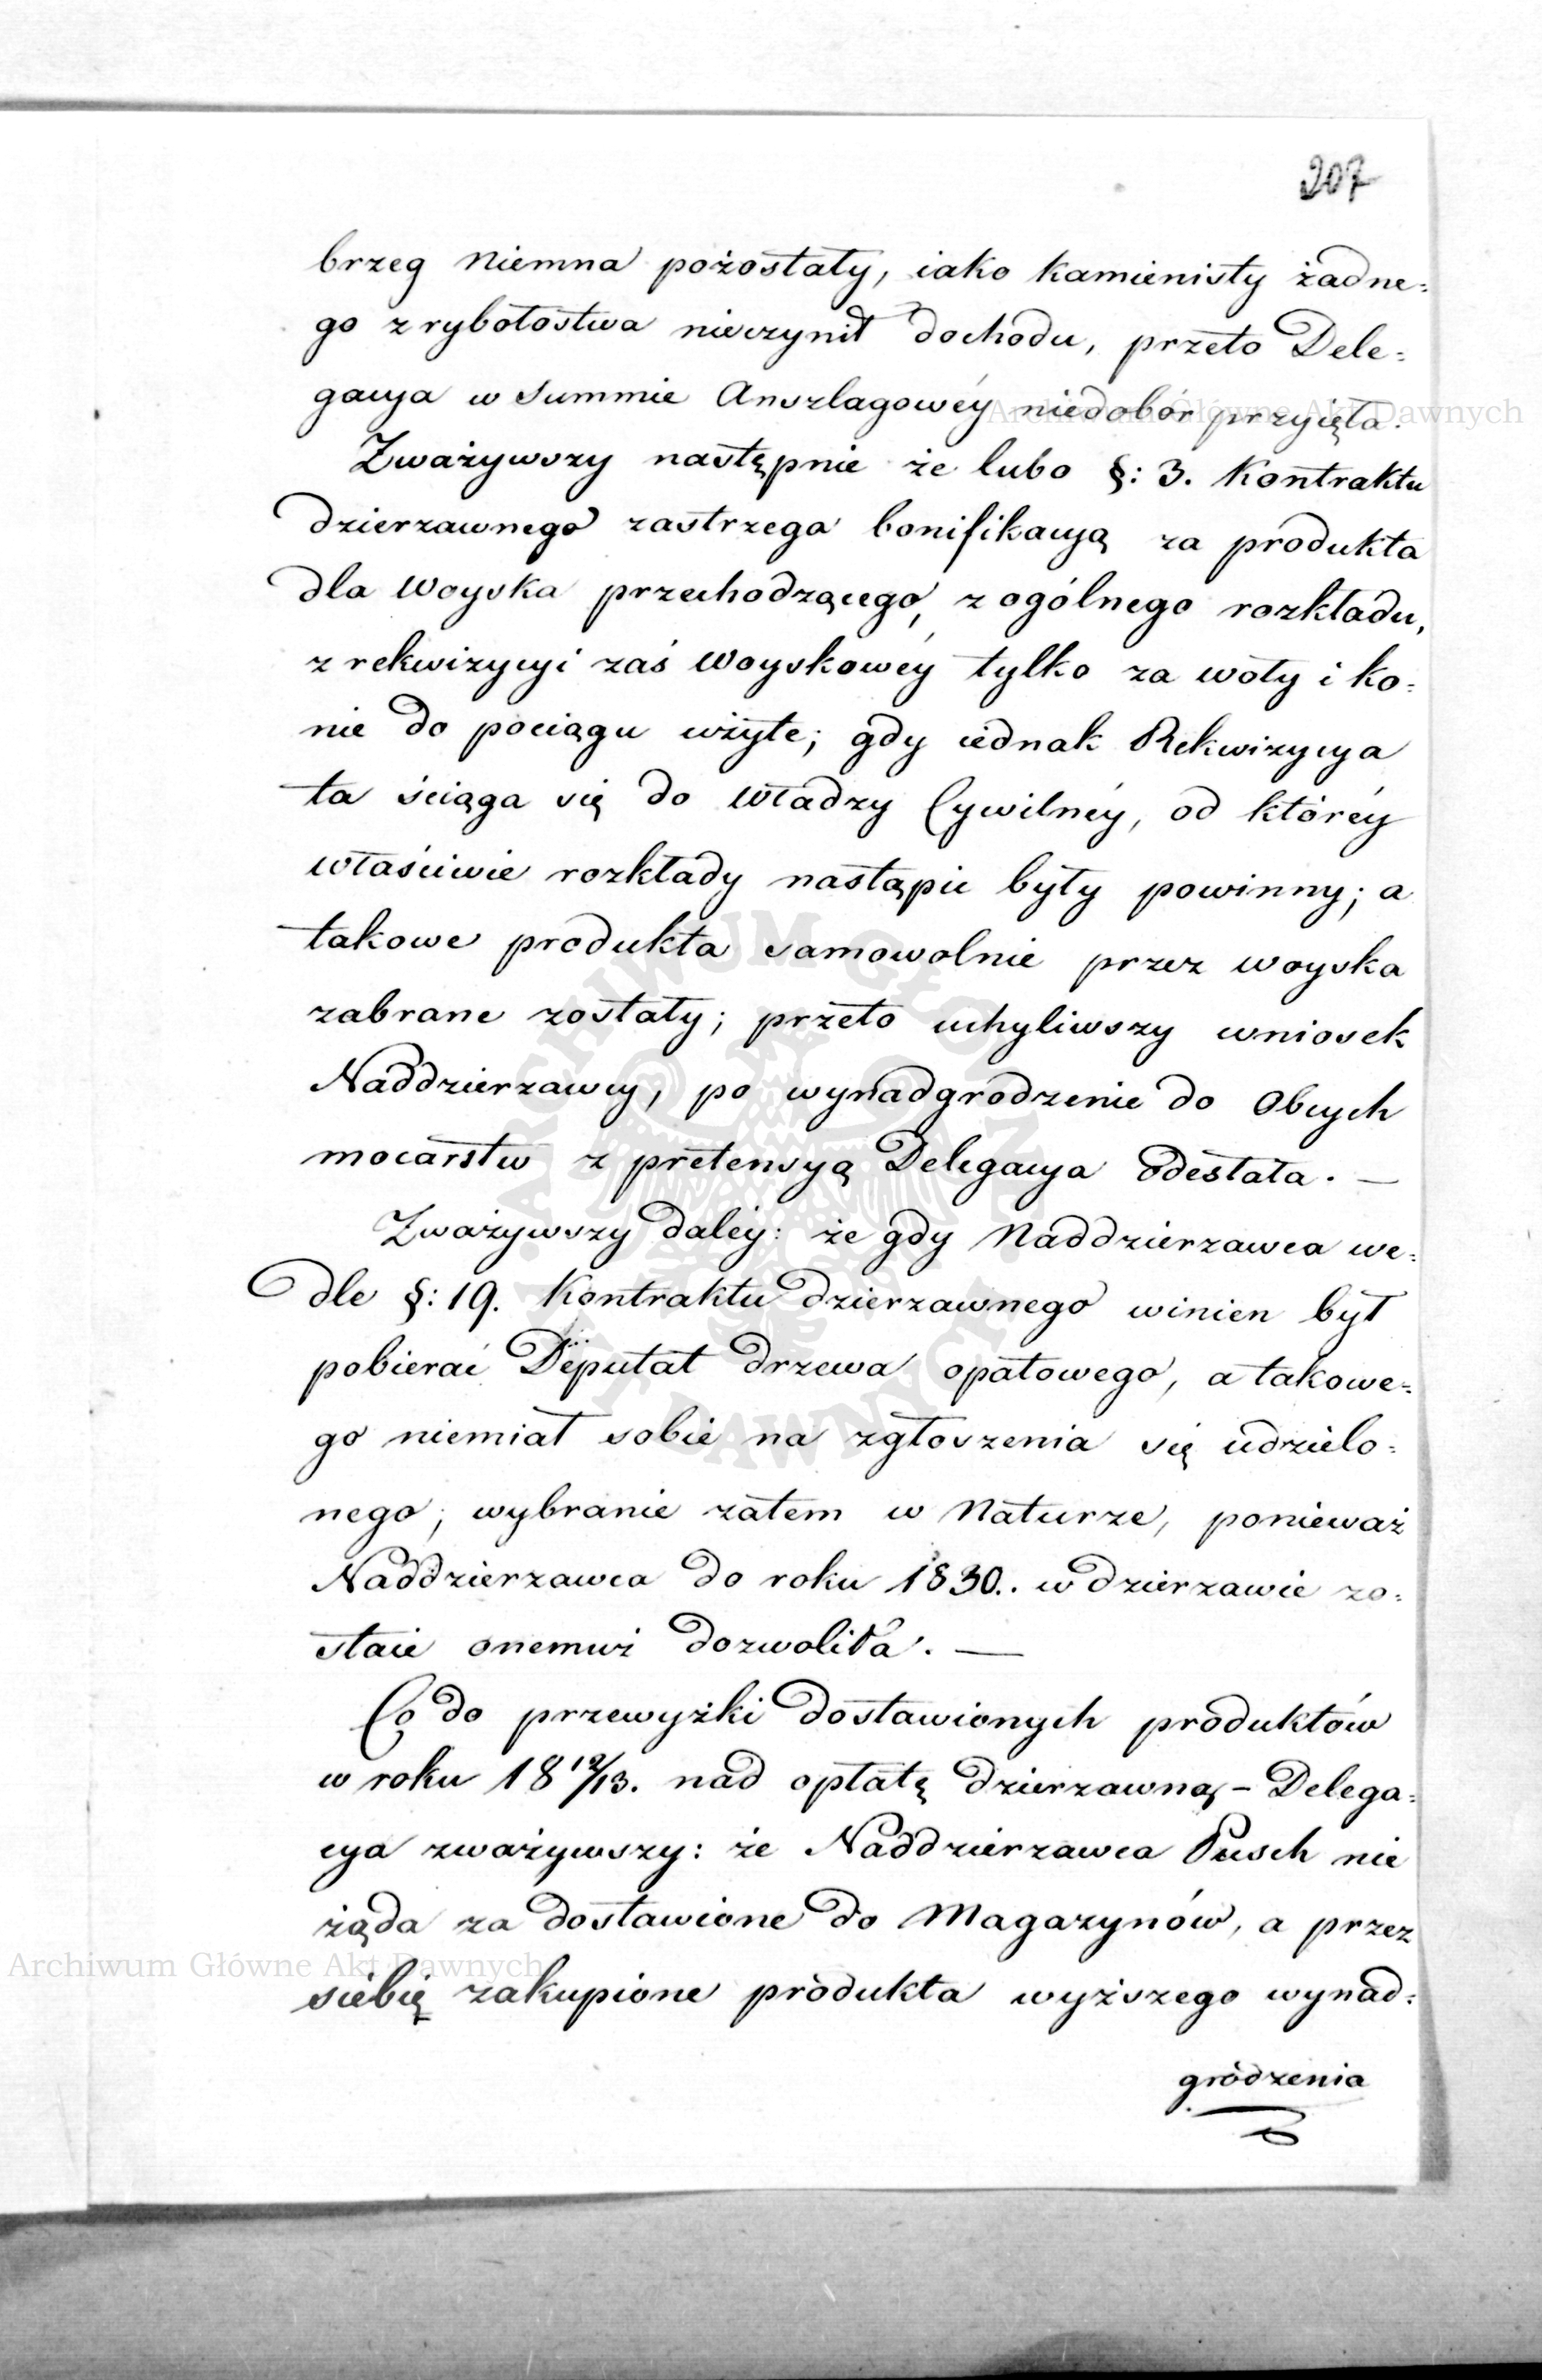 207
brzeg Niemna pozostały, iako kamienisty żadne=
go z rybołostwa nieczynił dochodu, przeto Dele=
gacya w Summie Anszlagowéy niedobór przyięła.
Zważywszy następnie że lubo §: 3. Kontraktu
dzierzawnego zastrzega bonifikacyą za produkta
dla Woyska przechodzącego, z ogólnego rozkładu,
z rekwizycyi zaś Woyskowéy tylko za woły i ko=
nie do pociągu użyte; gdy iednak Rekwizycya
ta ściąga się do Władzy Cywilnéy, od któréy
właściwie rozkłady nastąpić były powinny; a
takowe produkta samowolnie przez woyska
zabrane zostały; przeto uchyliwszy wniosek
Naddzierzawcy, po wynadgrodzenie do Obcych
mocarstw z pretensyą Delegacya odesłała. —
Zważywszy daléy: że gdy Naddzierzawca we=
dle §: 19. Kontraktu dzierzawnego winien był
pobierać Deputat drzewa opałowego, a takowe=
go niemiał sobie na zgłoszenia się udzielo=
nego; wybranie zatem w Naturze, ponieważ
Naddzierzawca do roku 1830.. w dzierzawie zo=
staie onemuż dozwoliła. —
Co do przewyżki dostawionych produktów
w roku 18 12/13. nad opłatę dzierzawną – Delega=
cya zważywszy: że Naddzierzawca Pusch nie
żąda za dostawione do Magazynów, a przez
siebię zakupione produkta wyższego wynad=
grodzenia
Archiwum Główne Akt Dawnych
Archiwum Główne Akt Dawnych
ARCHIWUM GŁÓWNE AKT DAWNYCH